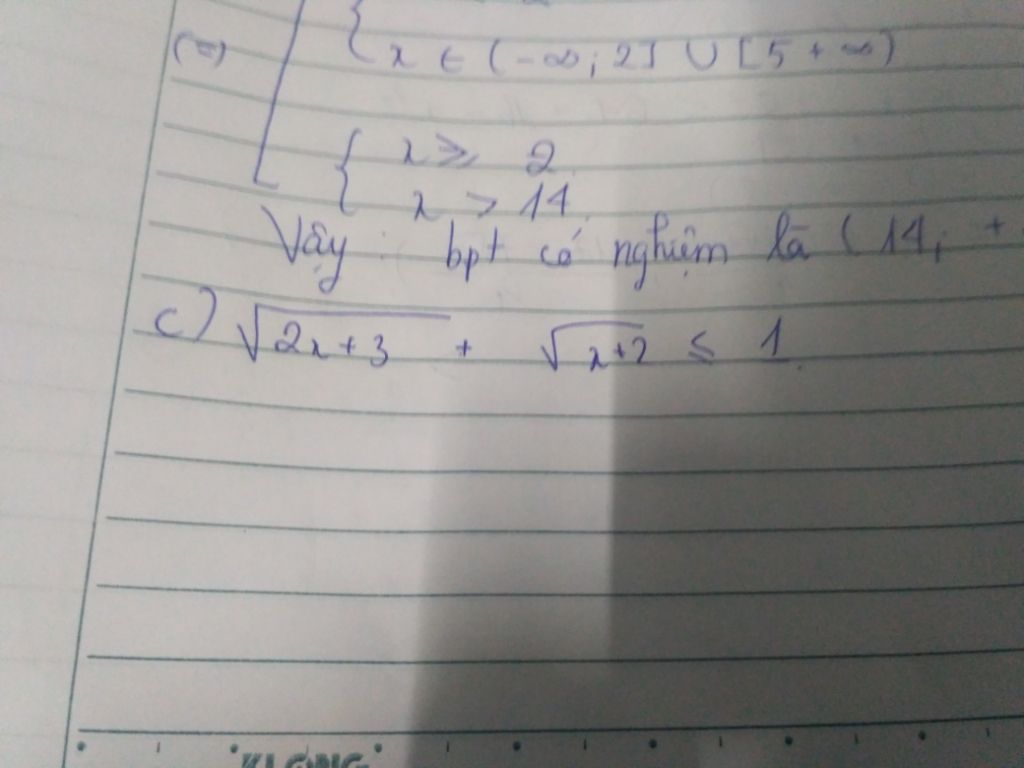 (=)
{ x ∈ (-∞; 2] ∪ [5 + ∞)
{ x ⩾ 2
x > 14
Vậy : bpt có nghiệm là ( 14; +
c) √2x+3 + √x+2 ≤ 1
KLONG